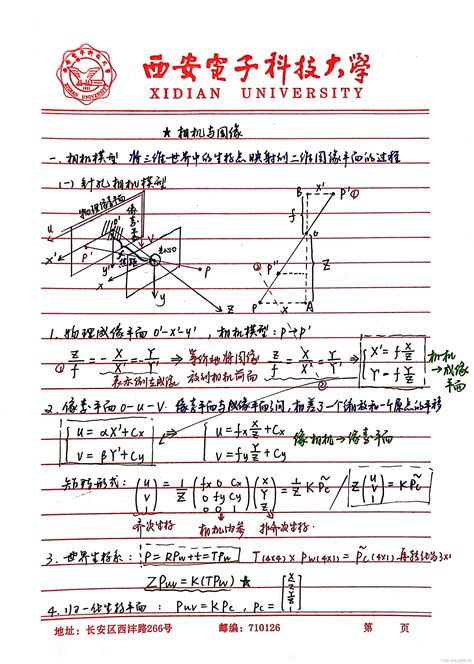 西安電子科技大學
XIDIAN UNIVERSITY
★ 相机与图像
一、相机模型 将三维世界中的坐标点映射到二维图像平面的过程
(一) 针孔相机模型
物理成像平面
像素平面
B X' P' ①
f
O
P" ②
P X A
u x' P' y' v O' P y x Z
1. 物理成像平面 O'-X'-Y', 相机模型: P→P'
① Z/f = -X/X' = -Y/Y' ⇒ 等价地将成像放到相机前面 Z/f = X/X' = Y/Y' ⇒ { X' = f X/Z Y' = f Y/Z 相机→成像平面
表示倒立成像 ②
2. 像素平面 O-u-v. 像素平面与成像平面之间, 相差了一个缩放和一个原点的平移
{ u = αX'+Cx v = βY'+Cy { u = fx X/Z + Cx v = fy Y/Z + Cy 像相机→像素平面
矩阵形式: (u v 1) = 1/Z (fx 0 Cx 0 fy Cy 0 0 1) (X Y Z) = 1/Z K P̃c / Z(u v 1) = K P̃c
齐次坐标 相机内参 非齐次坐标
3. 世界坐标系: P̃ = RPw+t = TPw T(4x4) × Pw(4x1) = P̃c(4x1) 再转化为3x1
ZPuv = K(TPw) ★
4. 归一化坐标平面: Puv = KPc, Pc = [X/Z Y/Z 1]
地址: 长安区西沣路266号 邮编: 710126 第 页